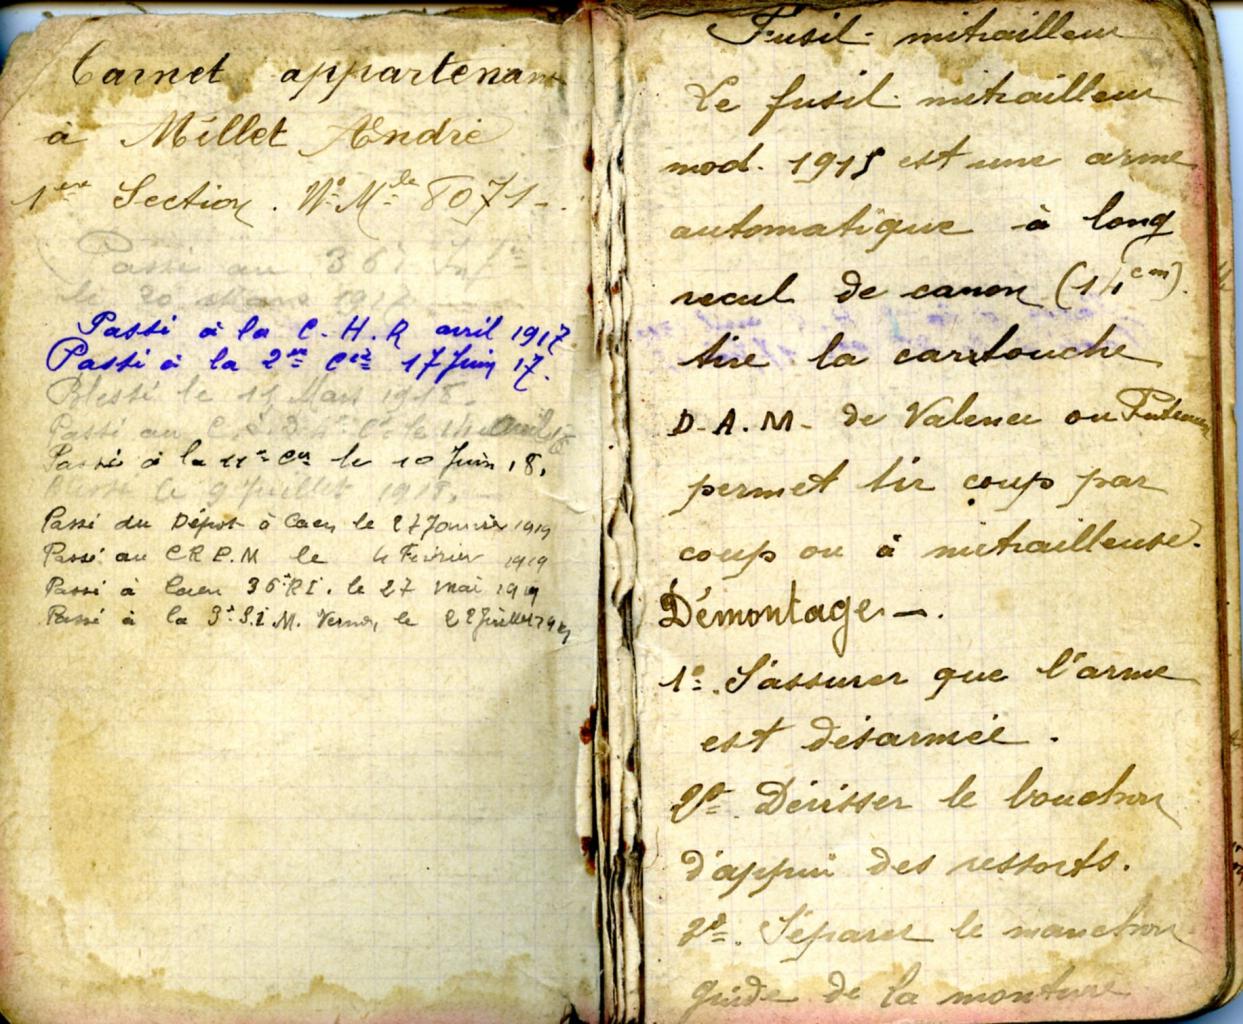 Carnet appartenant
à Millet André
1ère Section. No Mle 8071-.
Passé au 36 Inf
le 20 Mars 1917
Passé à la C.H.R avril 1917
Passé à la 2me Cie 17 Juin 17.
Blessé le 15 Mars 1918.
Passé au
Passé à la 11e Cie le 10 Juin 18.
Blessé le 9 Juillet 1918.
Passé du Dépot à Caen le 27 Janvier 1919
Passé au C R E.M le 4 Février 1919
Passé à Caen 36e RI. le 27 Mai 1919
Passé à la 3e S.I M. Vernon le 22 Juillet 1919
Fusil-mitrailleur
Le fusil-mitrailleur
mod. 1915 est une arme
automatique à long
recul de canon (11cm).
tire la cartouche
D.A.M. de Valence ou Puteaux
permet tir coup par
coup ou à mitrailleuse.
Démontage -.
1o. S'assurer que l'arme
est désarmée.
2o Dévisser le bouchon
d'appui des ressorts.
3o. Séparer le manchon
guide de la monture